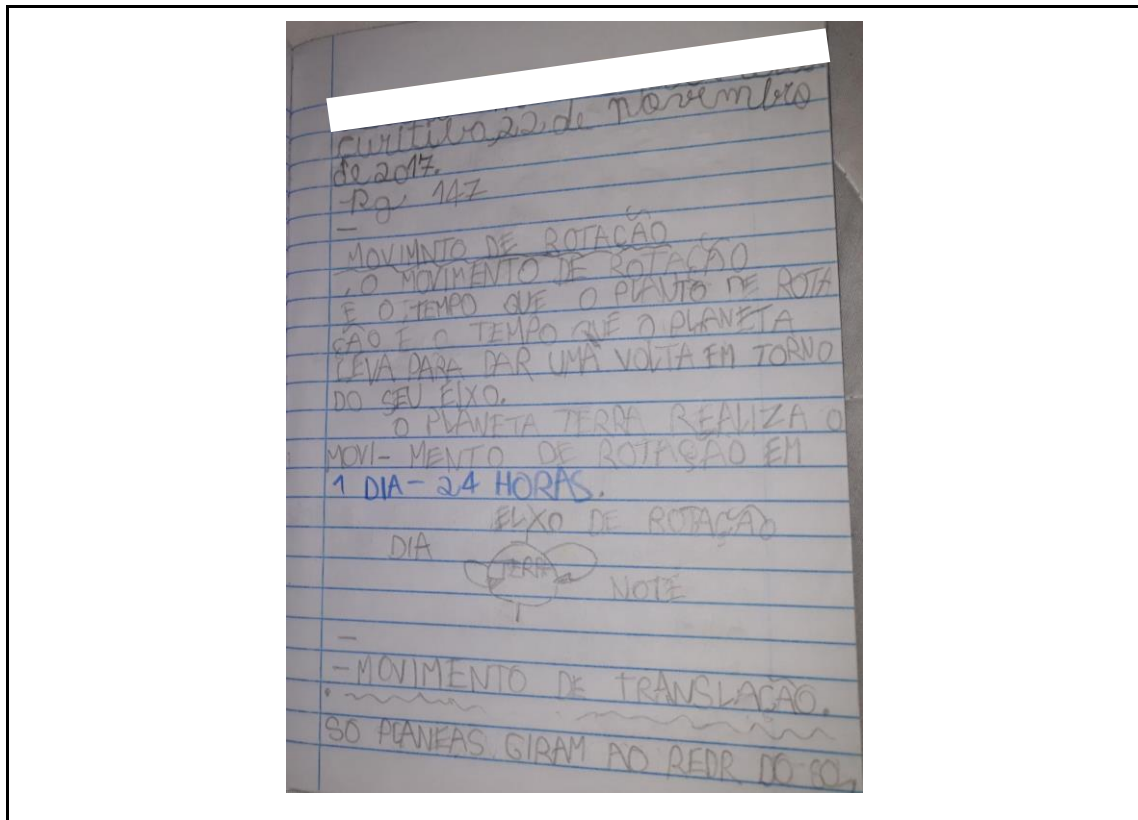 curitiba,22,de novembro
de 2017.
Pg. 147
-
MOVIMNTO DE ROTAÇÃO
, O MOVIMENTO DE ROTAÇÃO
E O TEMPO QUE O PLANTO DE ROTA
ÇÃO E O TEMPO QUE O PLANETA
LEVA PARA DAR UMA VOLTA EM TORNO
DO SEU EIXO.
O PLANETA TERRA REALIZA O
MOVI- MENTO DE ROTAÇÃO EM
1 DIA - 24 HORAS.
EIXO DE ROTAÇÃO
DIA
TERRA
NOTE
-
- MOVIMENTO DE TRANSLAÇÃO.
SO PLANEAS GIRAM AO REDR DO SOL,